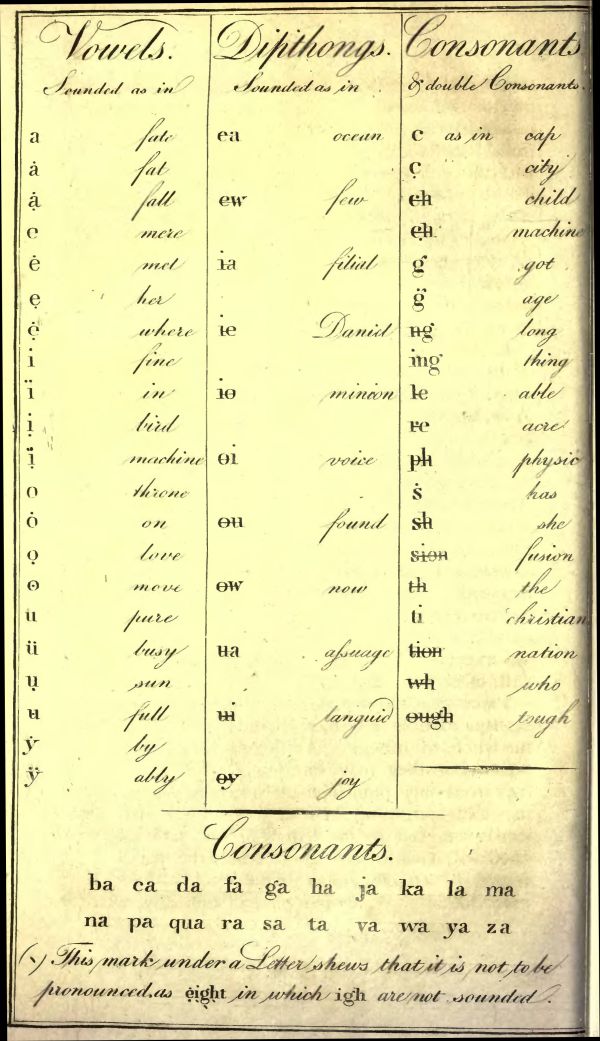 Vowels.
Sounded as in
a fate
ȧ fat
ạ̇ fall
e mere
ė met
ẹ her
ẹ̇ where
i fine
ï in
ị bird
ị̈ machine
o throne
ȯ on
ọ love
ɵ move
u pure
ü busy
ụ sun
ʉ full
ẏ by
ÿ ably
Dipthongs.
Sounded as in
ea ocean
ew few
ia filial
ie Daniel
io minion
oi voice
ou found
ow now
ua aſsuage
ui languid
oy joy
Consonants
& double Consonants.
c as in cap
c̣ city
ch child
c̣h machine
g got
g̈ age
ng long
ing thing
le able
re acre
ph physic
ṡ has
sh she
sion fusion
th the
ti christian
tion nation
wh who
ough tough
Consonants.
ba ca da fa ga ha ja ka la ma
na pa qua ra sa ta va wa ya za
(ˎ) This mark under a Letter shews that it is not to be
pronounced as eight in which igh are not sounded.